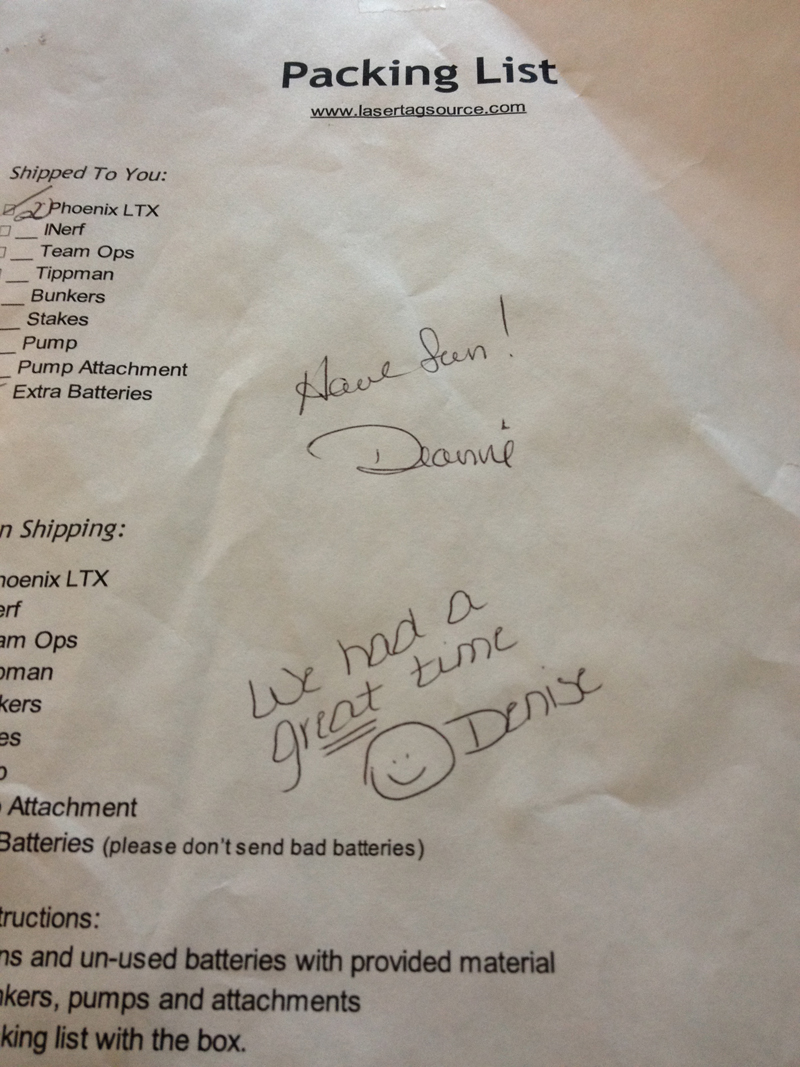 Packing List
www.lasertagsource.com
Shipped To You:
Phoenix LTX
INerf
Team Ops
Tippman
Bunkers
Stakes
Pump
Pump Attachment
Extra Batteries
Have fun!
Deannie
n Shipping:
hoenix LTX
erf
am Ops
pman
kers
es
p
Attachment
Batteries (please don't send bad batteries)
We had a
great time
Denise
tructions:
ns and un-used batteries with provided material
nkers, pumps and attachments
king list with the box.